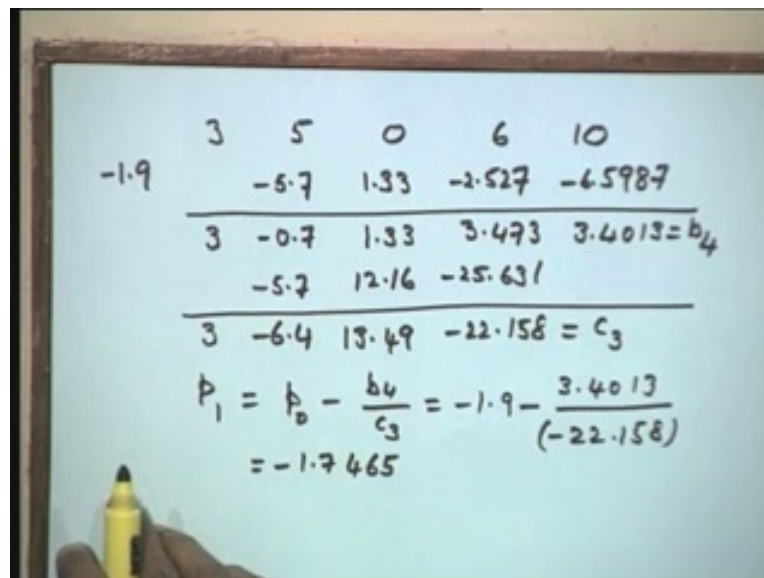 3 5 0 6 10
-1.9 -5.7 1.33 -2.527 -6.5987
3 -0.7 1.33 3.473 3.4013 = b4
-5.7 12.16 -25.631
3 -6.4 13.49 -22.158 = c3
p1 = p0 - b4/c3 = -1.9 - 3.4013/(-22.158)
= -1.7465